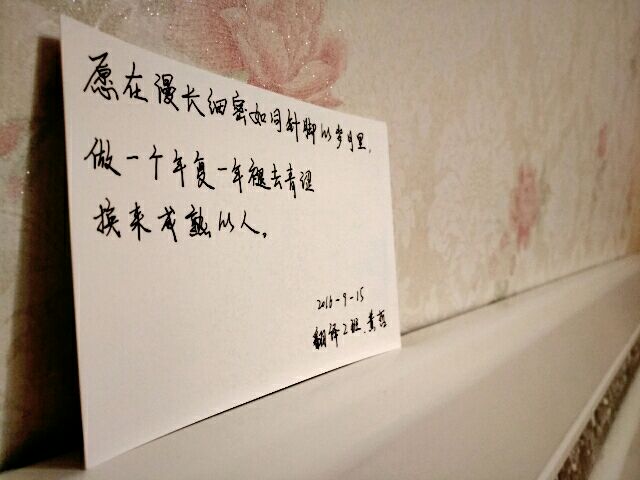 愿在漫长细密如同针脚的岁月里,
做一个年复一年褪去青涩
换来成熟的人。
2016-9-15
翻译2班.黄哲